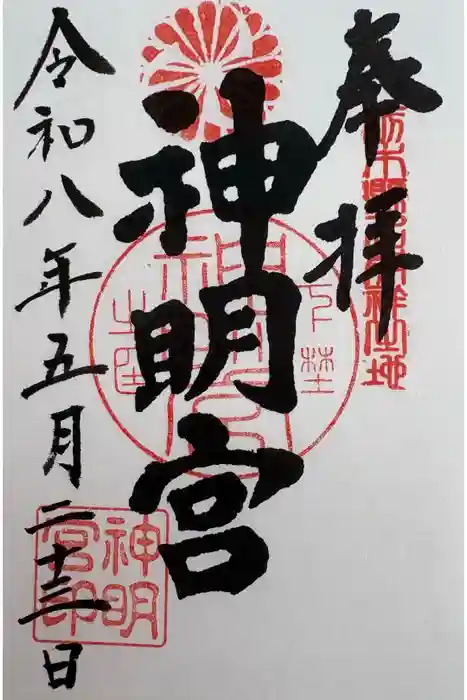 奉拝
神明宮
令和八年五月二十三日
神明宮印